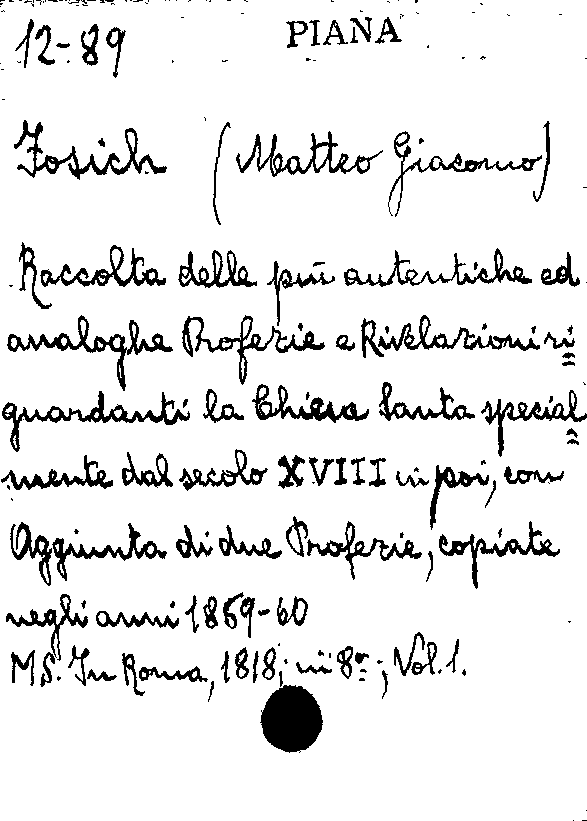 12-89 PIANA
Fosich (Matteo Giacomo)
Raccolta delle più autentiche ed
analoghe Profezie e Rivelazioni ri=
guardanti la Chiesa Santa special=
mente dal secolo XVIII in poi, con
Aggiunta di due Profezie, copiate
negli anni 1859-60
MS. In Roma, 1818; in 8º; Vol. 1.